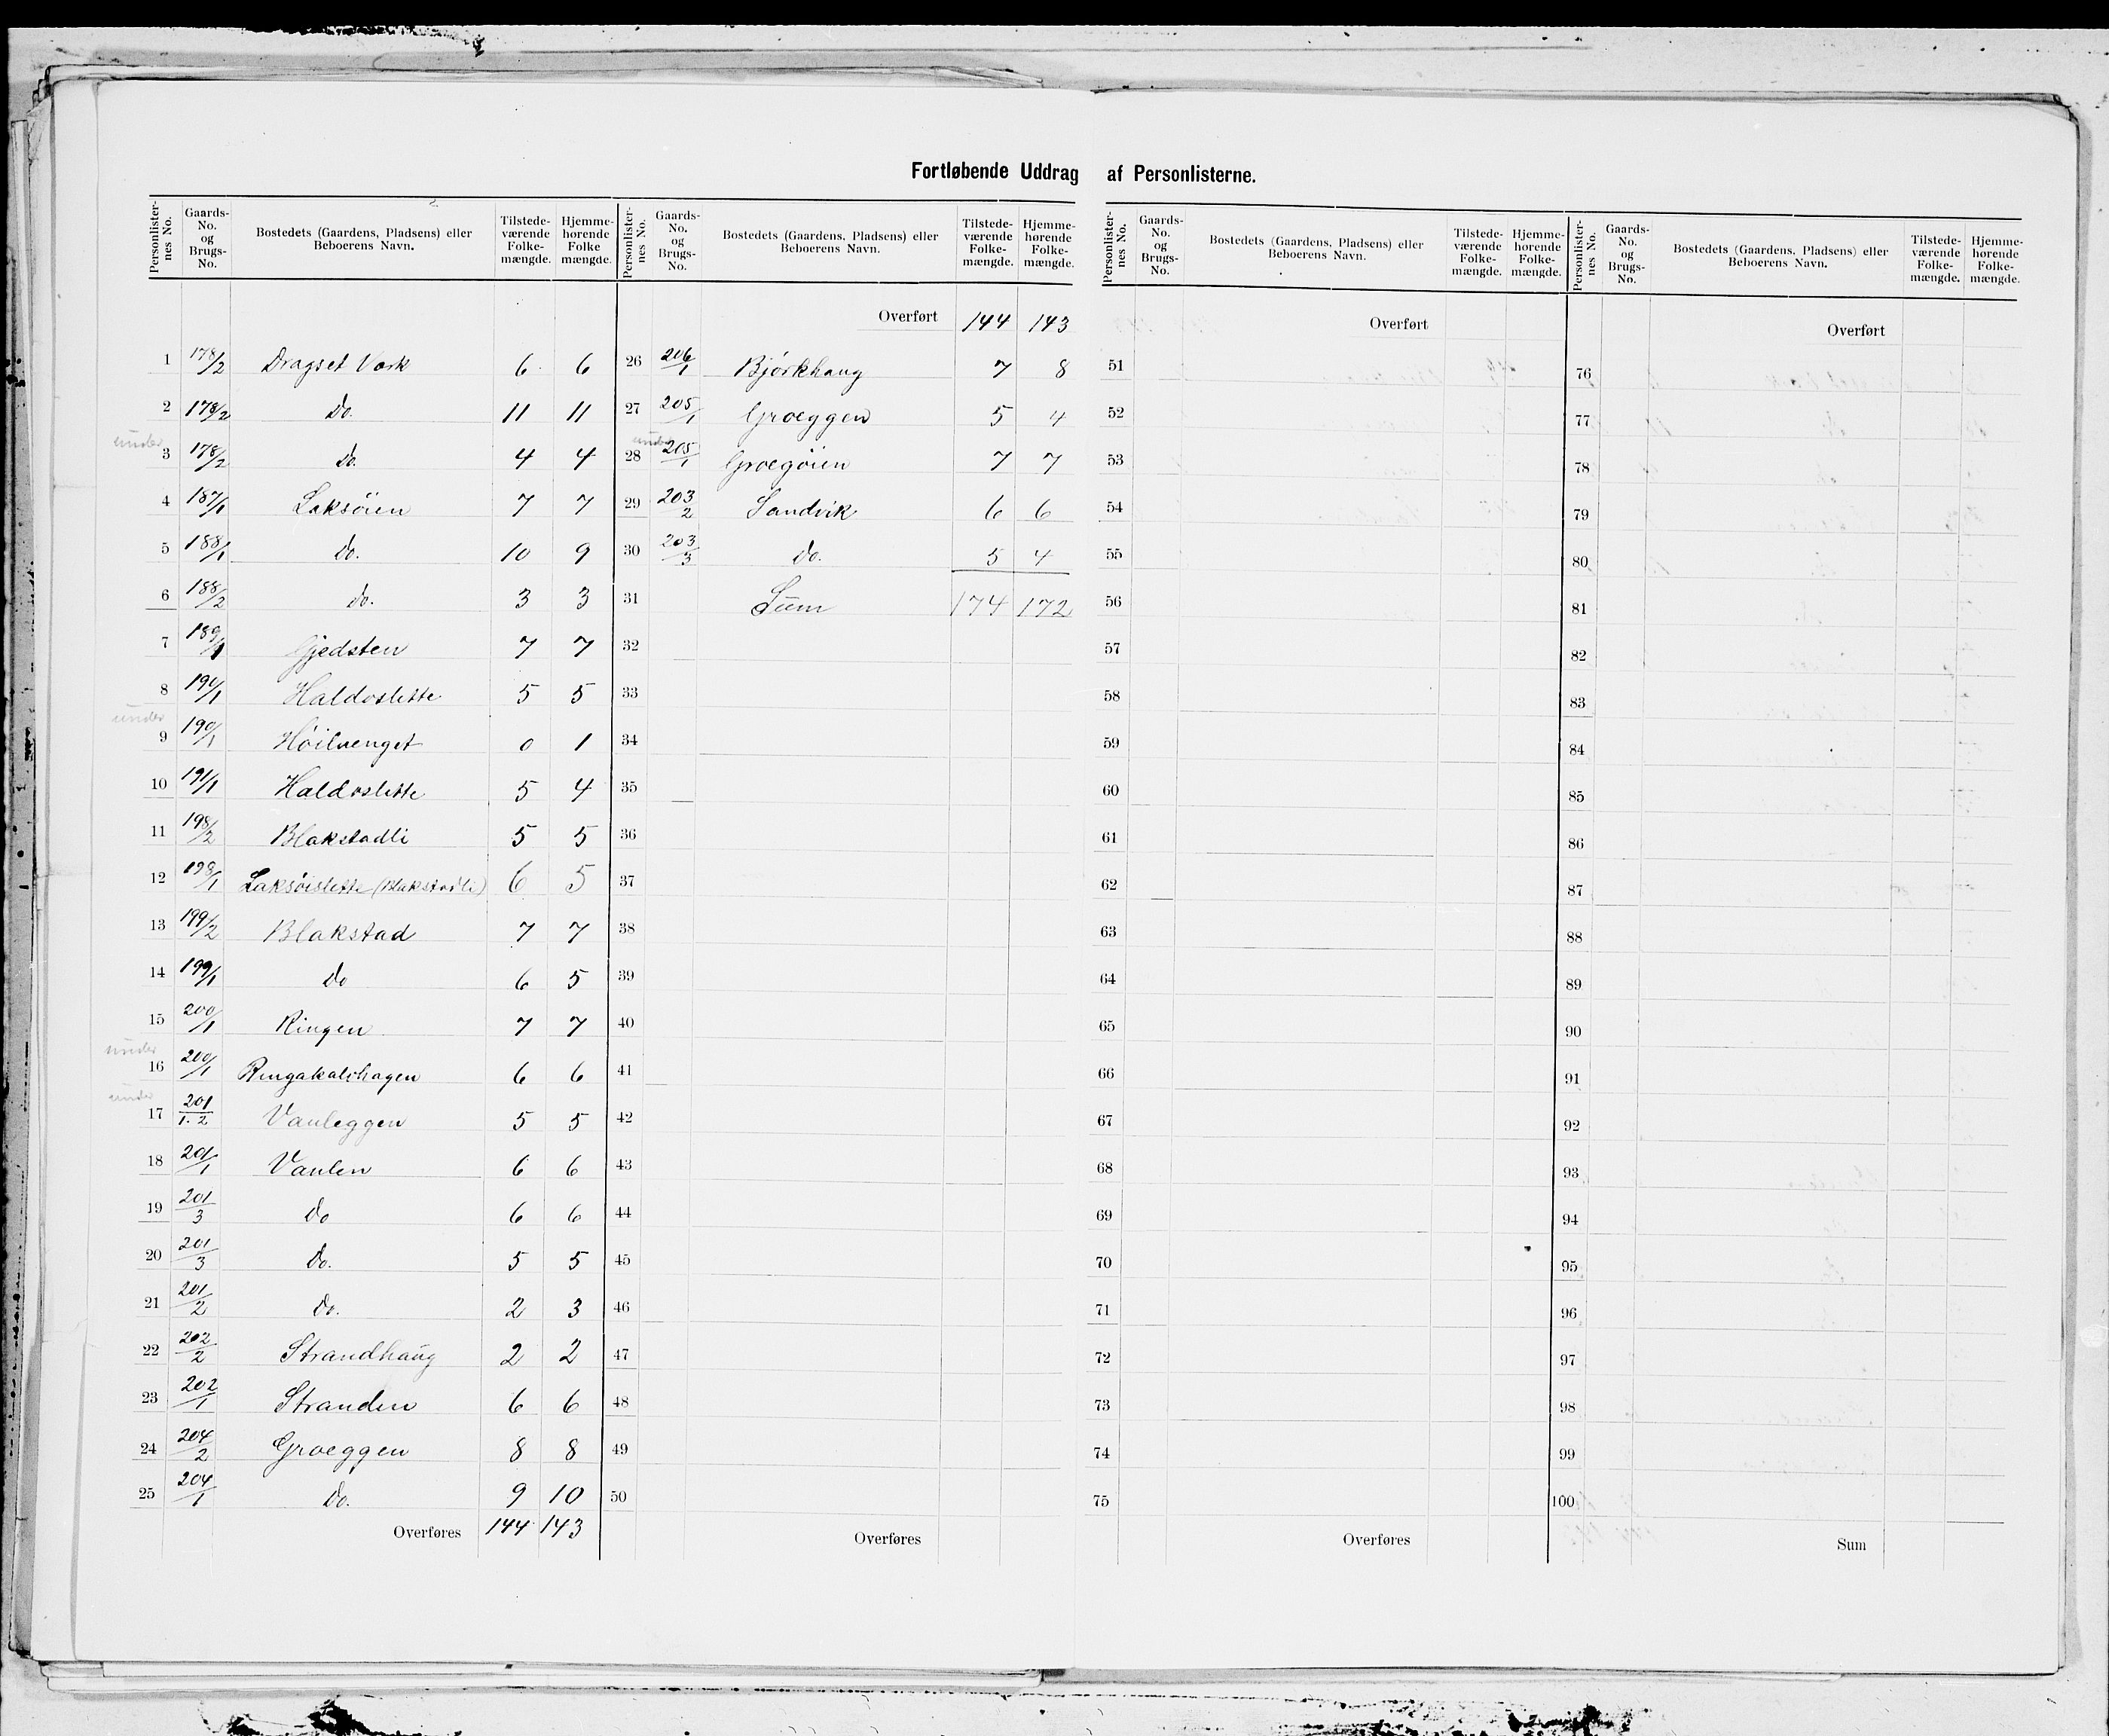 Fortløbende Uddrag af Personlisterne.
Personlisternes No. Gaards-No. og Brugs-No. Bostedets (Gaardens, Pladsens) eller Beboerens Navn. Tilstedeværende Folkemængde. Hjemmehørende Folkemængde.
1 178/2 Dragset Værk 6 6
2 178/2 Do. 11 11
under
3 178/2 Do. 4 4
4 187/1 Laksöien 7 7
5 188/1 Do. 10 9
6 188/2 Do. 3 3
7 189/1 Gjedsten 7 7
8 194/1 Haldoslette 5 5
under
9 190/1 Höilvenget 0 1
10 191/1 Haldoslette 5 4
11 198/2 Blakstadli 5 5
12 198/1 Laksöislette (Blakstadli) 6 5
13 199/2 Blakstad 7 7
14 199/1 Do 6 5
15 200/1 Ringen 7 7
under
16 200/1 Ringakalvhagen 6 6
under
17 201/1.2 Vauleggen 5 5
18 201/1 Vaulen 6 6
19 201/3 Do 6 6
20 201/3 Do. 5 5
21 201/2 Do. 2 3
22 202/2 Strandhaug 2 2
23 202/1 Stranden 6 6
24 204/2 Groeggen 8 8
25 204/1 Do. 9 10
Overføres 144 143
Personlisternes No. Gaards-No. og Brugs-No. Bostedets (Gaardens, Pladsens) eller Beboerens Navn. Tilstedeværende Folkemængde. Hjemmehørende Folkemængde.
Overført 144 143
26 206/1 Björkhaug 7 8
27 205/1 Groeggen 5 4
under
28 205/1 Groegöien 7 7
29 203/2 Sandvik 6 6
30 203/3 Do. 5 4
31 Sum 174 172
32
33
34
35
36
37
38
39
40
41
42
43
44
45
46
47
48
49
50
Overføres
Personlisternes No. Gaards-No. og Brugs-No. Bostedets (Gaardens, Pladsens) eller Beboerens Navn. Tilstedeværende Folkemængde. Hjemmehørende Folkemængde.
Overført
51
52
53
54
55
56
57
58
59
60
61
62
63
64
65
66
67
68
69
70
71
72
73
74
75
Overføres
Personlisternes No. Gaards-No. og Brugs-No. Bostedets (Gaardens, Pladsens) eller Beboerens Navn. Tilstedeværende Folkemængde. Hjemmehørende Folkemængde.
Overført
76
77
78
79
80
81
82
83
84
85
86
87
88
89
90
91
92
93
94
95
96
97
98
99
100
Sum